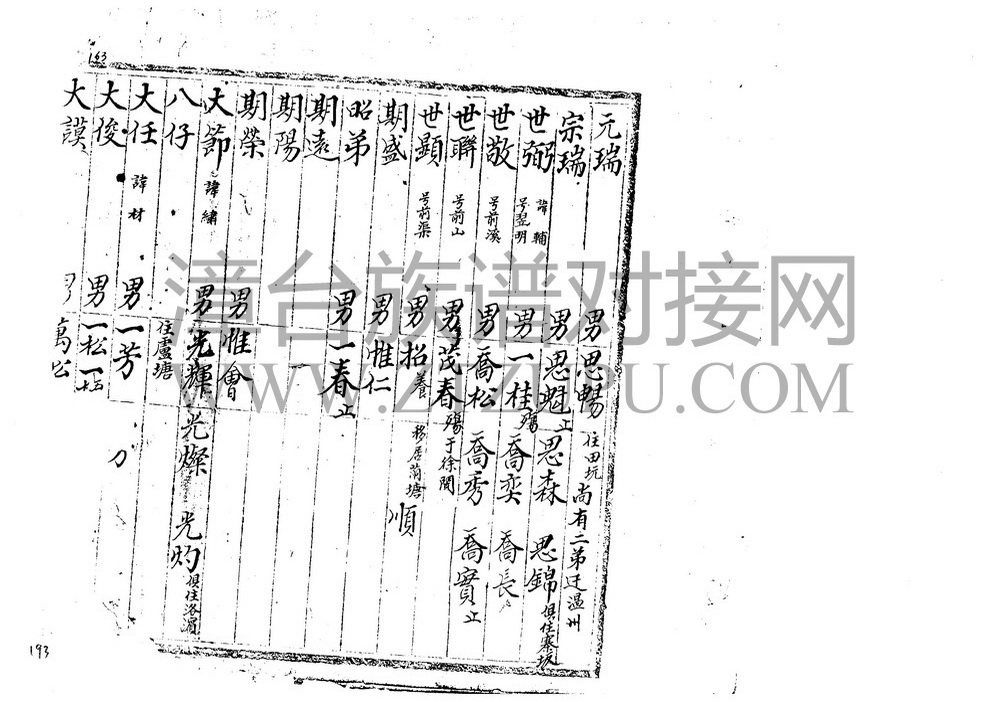 193
元瑞 男思暢 住田坑 尚有二弟迁温州
宗瑞 男思魁止 思森 思錦 俱住寨坂
世弼 諱輔 号翌明 男一桂殤 喬奕 喬長
世敬 号前溪 男喬松 喬秀 喬實止
世聯 号前山 男茂春殤 于徐閩
世顯 号前渠 男招養 移居蒲塘
期盛 男惟仁 順
昭弟 男一春止
期遠
期陽
期榮 男惟會
大節 諱繡 男光輝 光燦 光灼 俱住洛湄
八仔 住盧塘
大任 諱材 男一芳
大俊 男一松 一
大謨 萬
193
漳台族谱对接网
WWW.ZTZUPU.COM